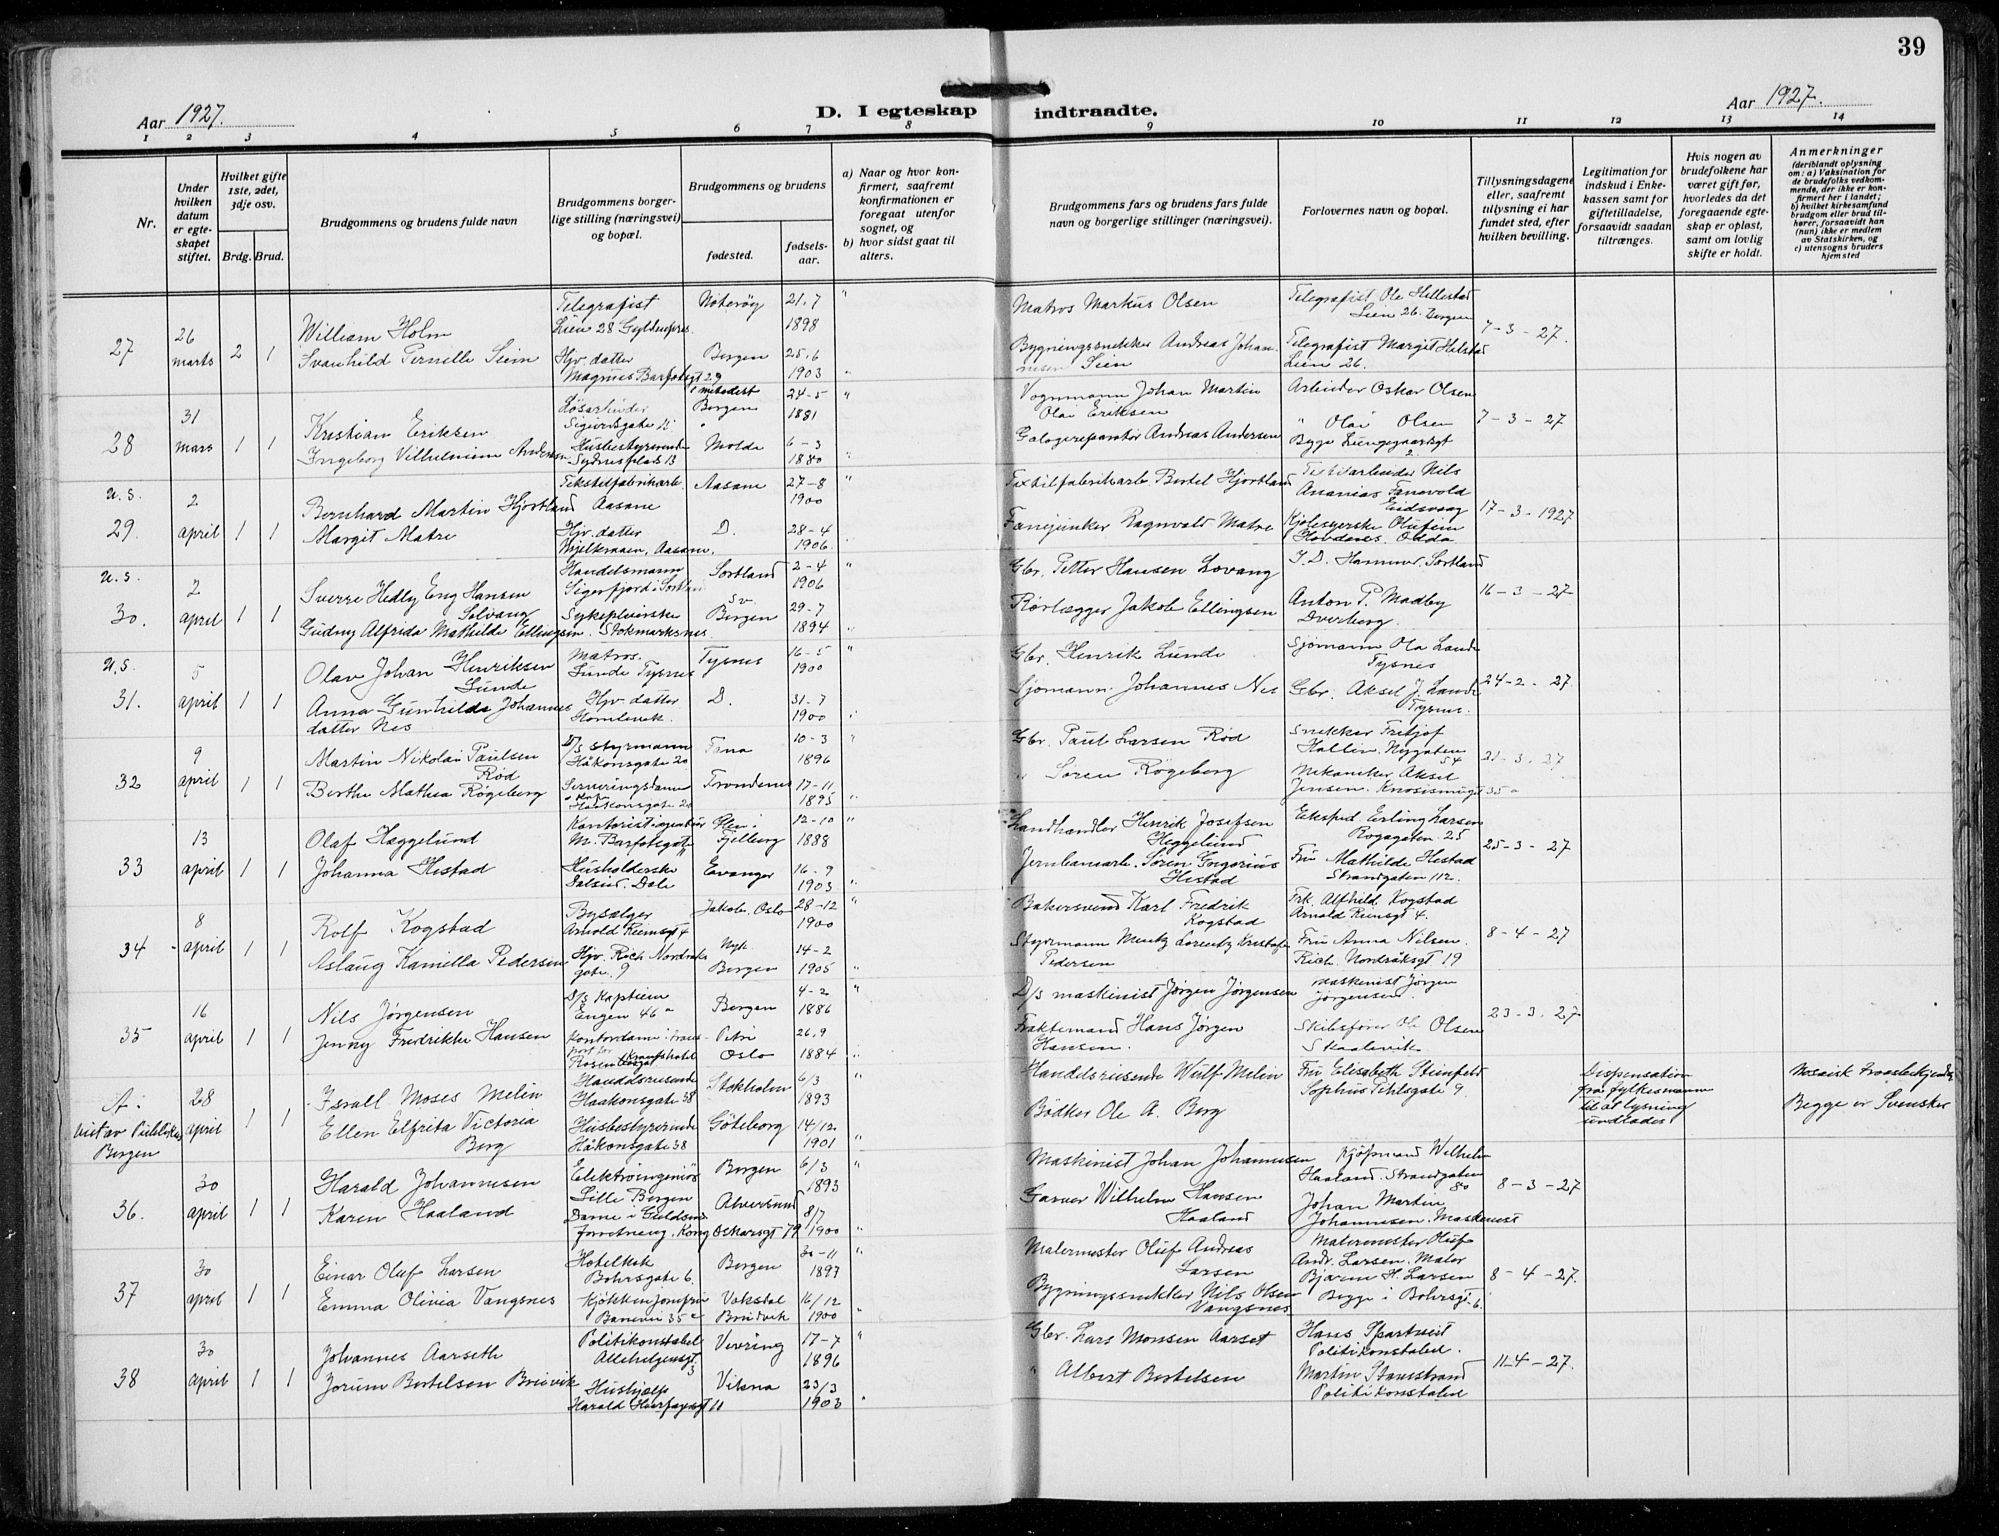 39
Aar 1927.
D. I egteskap indtraadte.
Aar 1927.
1 2 3 4 5 6 7 8 9 10 11 12 13 14
Nr.
Under hvilken datum er egteskapet stiftet.
Hvilket gifte 1ste, 2det, 3dje osv.
Brdg. Brud.
Brudgommens og brudens fulde navn
Brudgommens borgerlige stilling (næringsvei) og bopæl.
Brudgommens og brudens
fødested.
fødselsaar.
a) Naar og hvor konfirmert, saafremt konfirmationen er foregaat utenfor sognet, og
b) hvor sidst gaat til alters.
Brudgommens fars og brudens fars fulde navn og borgerlige stillinger (næringsvei).
Forlovernes navn og bopæl.
Tillysningsdagene eller, saafremt tillysning ei har fundet sted, efter hvilken bevilling.
Legitimation for indskud i Enkekassen samt for giftetilladelse, forsaavidt saadan tiltrænges.
Hvis nogen av brudefolkene har været gift før, hvorledes da det foregaaende egteskap er opløst, samt om lovlig skifte er holdt.
Anmerkninger (deriblandt oplysning om: a) Vaksination for de brudefolks vedkommende, der ikke er konfirmert her i landet; b) hvilket kirkesamfund brudgom eller brud tilhører, forsaavidt han (hun) ikke er medlem av Statskirken, og c) utensogns bruders hjemsted
27 26 marts 2 1
William Holm
Svanhild Pernille Seim
Telegrafist Lien 28 Gyldenpris
Hjv datter Magnus Barfotsgt 29
Nøterøy 21.7 1898
Bergen 25.6 1903
Matros Markus Olsen
Bygningssnekker Andreas Johannesen Seim
Telegrafist Ole Hellestad Lien 26 Bergen
Telegrafist Margit Helstad Lien 26.
7-3-27.
28 31 mars 1 1
Kristian Eriksen
Ingeborg Vilhelmine Andersen
Løsarbeider Sigurdsgate
Husbestyrerinde Sydnesplads 13
metodist Bergen 24-5 1881
Molde 6-3 1880
Vognmann Johan Martin Olai Eriksen
Galogereparatør Andreas Andersen
Arbeider Oskar Olsen
" Olai Olsen
Begge Lungegaardsgt 2.
7-3-27
u.s. 29. 2 april 1 1
Bernhard Martin Hjortland
Margit Matre
Tekstilfabrikarb. Aasane
Hjv datter Mjelkeraaen, Aasane.
Aasane 27-8 1900
D. 28-4 1906.
Textilfabrikarb. Bertel Hjortland
Fanejunker Ragnvald Matre
Textilarbeider Nils Ananias Fanevold Eidsvaag
Kjolesyerske Olufine Hovdenes. Odda
17-3-1927
u.s. 30. 2 april 1 1
Sverre Hedly Eng Hansen Solvang
Gudny Alfrida Mathilde Ellingsen.
Handelsmann Sigerfjord i Sortland
Sykepleierske Stokmarksnes.
Sortland 2-4 1906
Bergen 29-7 1894
Gbr. Petter Hansen Lovang
Rørlægger Jakob Ellingsen
I. D. Hammer. Sortland
Anton P. Madby Dverberg.
16-3-27
u.s. 31. 5 april 1 1
Olav Johan Henriksen Lunde
Anna Gunhilda Johannesdatter Nes
Matros. Lunde Tysnes
Hjv datter Hornelevik.
Tysnes 16-5 1900
D. 31-7 1900
Gbr. Henrik Lunde
Sjømann. Johannes Nes
Sjømann Ola Lande Tysnes
Gbr. Aksel J. Lande Tysnes.
24-2-27.
32 9 april 1 1
Martin Nikolai Paulsen Rød
Berthe Mathea Røgeberg
D/s styrmann Håkonsgate 20
Serveringsdame Haakonsgate 20
Fana 10-3 1896
Trondenes 17-11 1895
Gbr. Paul Larsen Rød
" Søren Røgeberg
Snekker Fritjof Hallin. Nygaten 54
Mekaniker Aksel Jensen. Knosismuget 35a
21-3-27
33 13 april 1 1
Olaf Hæggelund
Johanna Hestad
Kontorist M. Barfotsgate
Husholderske Dalseid. Dale
Fjelberg 12-10 1888
Evanger 16-9 1903
Landhandler Henrik Josefsen Heggelund
Jernbanearb. Søren Gregorius Hestad
Eksped Erling Larsen Rogagaten 25
Fru Mathilde Hestad Strandgaten 112.
25-3-27
34 8 april 1 1
Rolf Kogstad
Aslaug Kamilla Pedersen
Bysælger Arnold Reimsgt 4
Hjv. Rich Nordraks gate 9
Jakob. Oslo 28-12 1900
Nyk. Bergen 14-2 1905
Bakersvend Karl Fredrik Kogstad
Styrmann Mentz Lorentz Kristofer Pedersen
Frk. Alfhild Kogstad Arnold Reimsgt 4.
Fru Anna Nilsen. Rich. Nordråksgt 19
8-4-27
35 16 april 1 1
Nils Jørgensen
Jenny Fredrikke Hansen
D/s Kaptein Engen 46a
Kontordame
Bergen 4-2 1886
Petri Oslo 26.9 1884
D/s maskinist Jørgen Jørgensen
Fraktemand Hans Jørgen Hansen.
maskinist Jørgen Jørgensen
Skibsfører Ole Olsen Skaalevik
23-3.27
A. viet av Bergen 28 april 1 1
Israll Moses Melin
Ellen Elfrita Victoria Berg
Handelsreisende Haakonsgate 38
Husbestyrerinde Håkonsgate 38
Stokholm 6/3 1893
Göteborg 14/12 1901
Handelsreisende Wulf Melin
Bödker Ole A. Berg
Fru Elisabeth Steinfeldt Sophus Pihlsgate 9.
Dispensation fra fylkesmann til at lysning undlades
Mosaisk trosbekjendelse
Begge er Svensker
36. 30 april 1 1
Harald Johannesen
Karen Haaland
Elektroingeniør Lille Bergen
Dame i Guldsmed forretning. Kong Oskarsgt 79
Bergen 6/3 1893
Alversund 8/7 1900
Maskinist Johan Johannesen
Garver Wilhelm Hansen Haaland
Kjøpmand Wilhelm Haaland. Strandgaten 80
Johan Martin Johannesen. Maskinist
8-3-27
37 30 april 1 1
Einar Oluf Larsen
Emma Olivia Vangsnes
Hotelkok Bøhrsgate 6.
Kjøkkenjomfru Baneveien 35a
Bergen 30-11 1897
Vaksdal Bruvik 16/12 1900
Malermester Oluf Andreas Larsen
Bygningssnekker Nils Olsen Vangsnes
Malermester Oluf Andr. Larsen. Maler
Bjarne H. Larsen Begge i Bøhrsgt 6.
8-4-27.
38 30 april 1 1
Johannes Aarseth
Jorunn Bertelsen Breivik
Politikonstabel Allehelgensgt. 3
Hushjælp Harald Haarfagresgt 11
Vevring 17-7 1896
Vikna 23/3 1903
Gbr. Lars Monsen Aarset
" Albert Bertelsen
Hans Spartveit Politikonstabel.
Martin Stamstrand Politikonstabel
11-4-27.